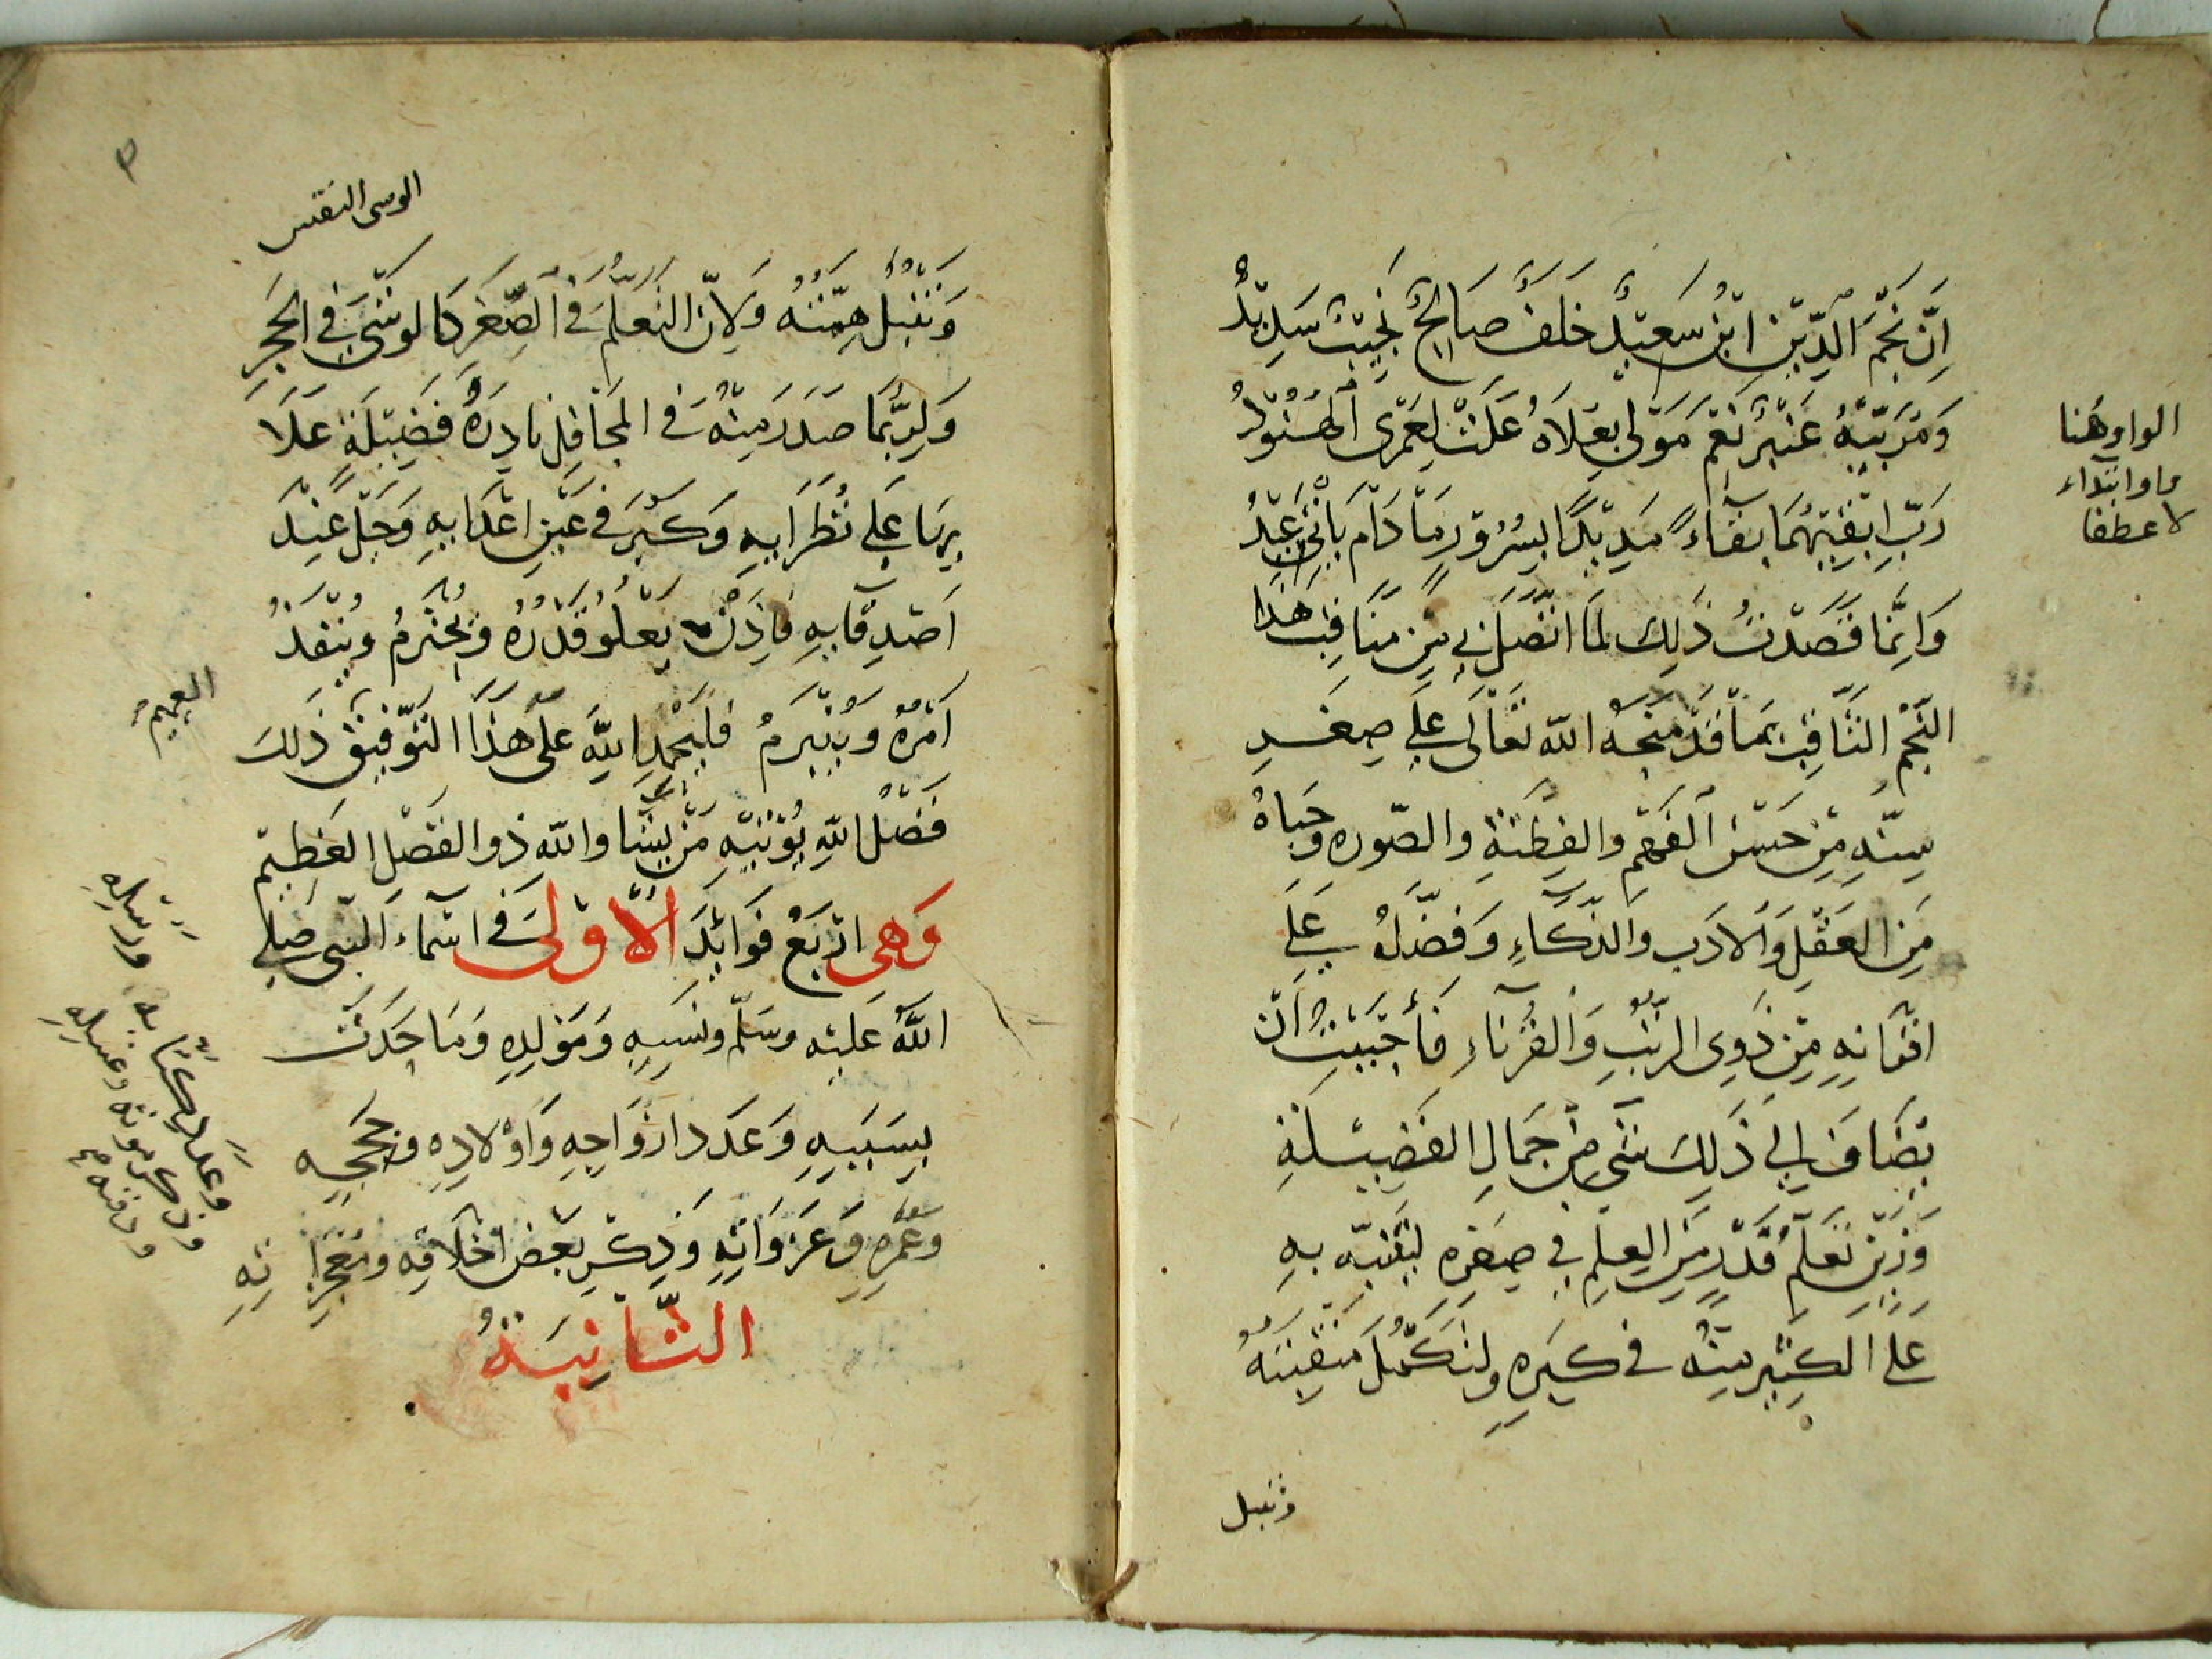 اِنَّ نَجْمَ الدِّيْنِ ابْنُ سَعِيْدٌ خَلَفٌ صَالِحٌ نَجِيْبٌ سَدِيْدٌ
وَمُرَبِّيْهُ عَنْبَرُ نِعْمَ مَوْلى بِعُلاهُ عَلَتْ لَعَمْرِى الهُنُوْدُ
رَبِّ ابْقِيْهُمَا بَقَاءً مَدِيْدًا بِسُرُوْرٍ مَا دَامَ يَأْتِى عِيْدُ
وَاِنَّمَا قَصَدْتُ ذَلِكَ لَمَا اتَّصَلَ بِي مِنْ مَنَاقِبِ هَذَا
النَّجْمِ الثَّاقِبِ بِمَا قَدْ مَنَحَهُ الله تَعَالَى عَلَى صِغَرِ
سِنِّهِ مِنْ حُسْنِ الفَهْمِ والفِطْنَةِ والصّوره وَحَبَاهُ
مِنَ العَقْلِ وَالاَدَبِ وَالذَّكَاءِ وَفَضَّلَهُ عَلَى
اقْرَانِهِ مِنْ ذَوِى الرُّتَبِ وَالقُرَنَاءِ فَأَحْبَبْتُ اَنْ
يُضَافَ اِلَى ذَلِكَ شَئ مِنْ جَمَالِ الفَضِيْلَةِ
وَزَيْنِ تَعَلُّمِ قَدْرٍ مِنَ العِلْمِ فِي صِغَرِهِ لِيَتَنَبَّهَ بِهِ
عَلَى الكَثِيْرِ مِنْهُ فِى كِبَرِهِ وَلِتَكْمُلَ مَنْقَبَتُهُ
وتنبل
الواو هنا
واو ابتداء
لا عطفا
الوسى النقس
وَتَنْبُلُ هِمَّتُهُ وَلاِنَّ التَّعَلُّمَ فِى الصِّغَرِ كَالوَشْيِ فِى الحَجَرِ
وَلَرُبَّمَا صَدَرَ مِنْهُ فِى المَحَافِلِ نَادِرَةُ فَضِيْلَةٍ عَلَا
بِهَا عَلَى نُظَرَايِهِ وَكَبُرَ فِى عَيْنِ اعْدَايِهِ وَجَلَّ عِنْدَ
اَصْدِقَايِهِ فَاِذَنْ يَعْلُوْ قَدْرُهُ وَيُحْتَرَمُ وَيَنْفُذُ
اَمْرُهُ وَيُبْرَمُ فَلْيَحْمَدِ اللهَ عَلَى هَذَا التَّوْفِيْقِ ذَلِكَ
فَضْلُ اللهِ يُؤْتِيْهِ مَنْ يَشَا والله ذو الفَضْلِ العَظِيْمِ
وَهِى ارْبَعُ فَوَائِدَ الاُوْلَى فِى اسْمَاءِ النَّبى صَلى
اللهُ عَلَيْهِ وسَلَّم ونَسَبِهِ وَمَوْلِدِهِ وَمَا حَدَثَ
بِسَبَبِهِ وَعَدَدِ ازْوَاجِهِ وَاَوْلَادِهِ وَحَجِّهِ
وَعُمَرِهِ وَغَزَوَاتِهِ وَذِكْرِ بَعْضِ اخْلَاقِهِ وَمُعْجِزَاتِهِ
الثَّانِيَةُ
وَعَدَدِ كُتَّابِهِ وَرُسُلِهِ
وَذكر موته وغسله
ودفنه